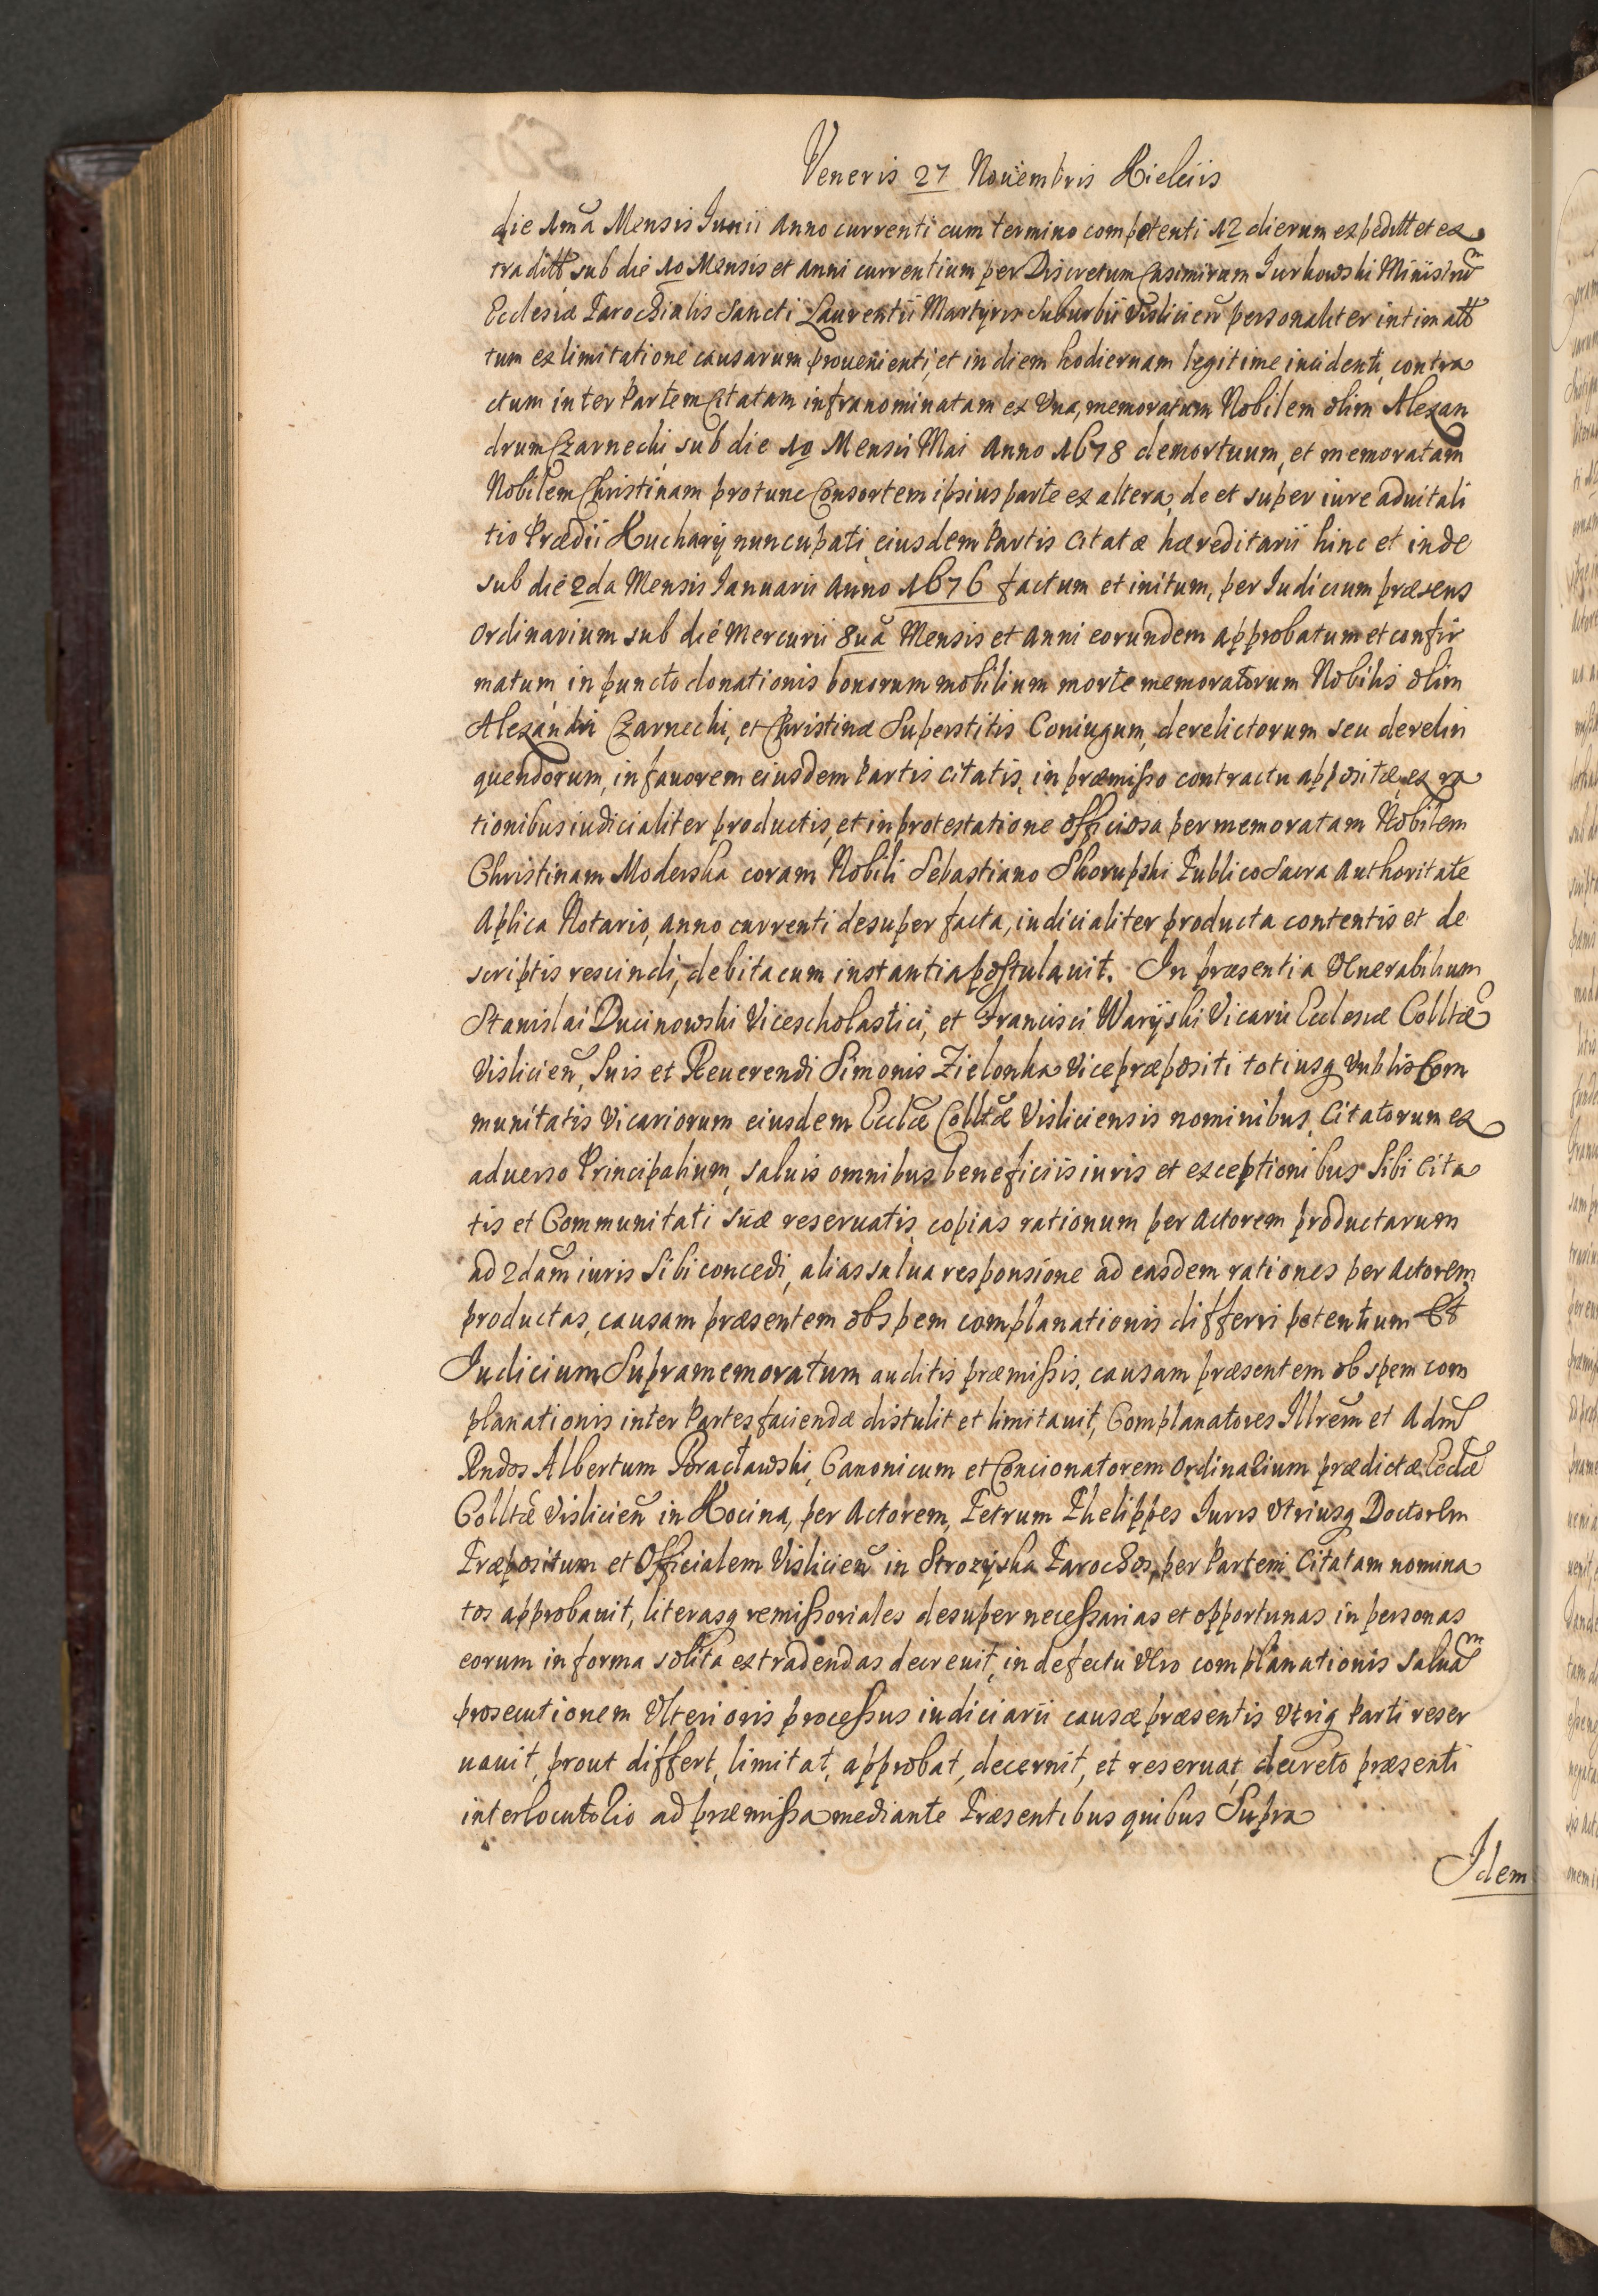 Veneris 27 Nouembris Kielciis
die 1mã Mensis Junii Anno currenti cum termino competenti 12 dierum expeditt et ex
traditt sub die 10 Mensis et Anni currentium per Discretum Casimirum Jurkowski Ministrũm
Ecclesiæ Parochialis Sancti Laurentii Martyris Suburbii Vislicien̄ personaliter intimatt
tum ex limitatione causarum prouenienti, et in diem hodiernam legitime incidenti, contra
ctum inter Partem Citatam infranominatam ex Vna, memoratum Nobilem olim Alexan
drum Czarnecki, sub die 10 Mensis Mai Anno 1678 demortuum, et memoratam
Nobilem Christinam protunc Consortem ipsius parte ex altera, de et super iure aduitali
tio Prædii Kuchary nuncupati eiusdem Partis Citatæ hæreditarii hinc et inde
sub die 2da Mensis Januarii Anno 1676 factum et initum, per Judicium præsens
Ordinarium sub die Mercurii 8uã Mensis et Anni eorundem approbatum et confir
matum in puncto donationis bonorum mobilium morte memoratorum Nobilis olim
Alexandri Czarnecki, et Christinæ Superstitis Coniugum, derelictorum seu derelin
quendorum, in fauorem eiusdem Partis Citatis, in præmisso contractu appositæ, ex ra
tionibus iudicialiter productis, et in protestatione officiosa per memoratam Nobilem
Christinam Moderska coram Nobili Sebastiano Skorupski Publico Sacra Authoritate
Aplica Notario, anno currenti desuper facta, iudicialiter producta contentis et de
scriptis rescindi, debita cum instantia postulauit. In præsentia Venerabilium
Stanislai Ducinowski Vicescholastici, et Francisci Waryski Vicarii Ecclesiæ Colltæ
Vislicien̄, Suis et Reuerendi Simonis Zielonka Vicepræpositi totiusq Vnblis Com
munitatis Vicariorum eiusdem Ecclæ Colltæ Visliciensis nominibus, Citatorum ex
aduerso Principalium, saluis omnibus beneficiis iuris et exceptionibus Sibi Cita
tis et Communitati Suæ reseruatis, copias rationum per Actorem productarum
ad 2dam̃ iuris Sibi concedi, alias salua responsione ad easdem rationes per Actorem
productas, causam præsentem ob spem complanationis differri petentium Et
Judicium Supramemoratum auditis præmissis, causam præsentem ob spem com
planationis inter Partes faciendæ distulit et limitauit, Complanatores Illrem̃ et Adm̃
Rndos Albertum Poractawski, Canonicum et Concionatorem Ordinarium prædictæ Ecclæ
Colltæ Vislicien̄ in Kocina, per Actorem, Petrum Phelippes Juris Vtriusq Doctorem
Præpositum et Officialem Vislicien̄ in Strozyska Parochos, per Partem Citatam nomina
tos approbauit, literasq remissoriales desuper necessarias et opportunas in personas
eorum in forma solita extradendas decreuit, in defectu vero complanationis saluãm
prosecutionem Vlterioris processus iudiciarii causæ præsentis Vtriq Parti reser
uauit, prout differt, limitat, approbat, decernit, et reseruat, decreto præsenti
interlocutorio ad præmissa mediante Præsentibus quibus Supra
Idem